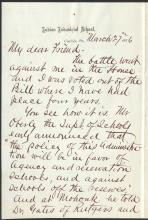 Indian Industrial School,
March 27th 86
My dear Friend-
The battle went
against me in the House
and I was voted out of the
Bill where I have had
place four years.
You see how it is. Mr
Oberly the Supt of Schools
early announced that
"the policy of this administra
tion will be in favor of
agency and reservation
schools, and against
schools off the reserves"
and at Mohonk he told
Dr Gates of Rutgers and